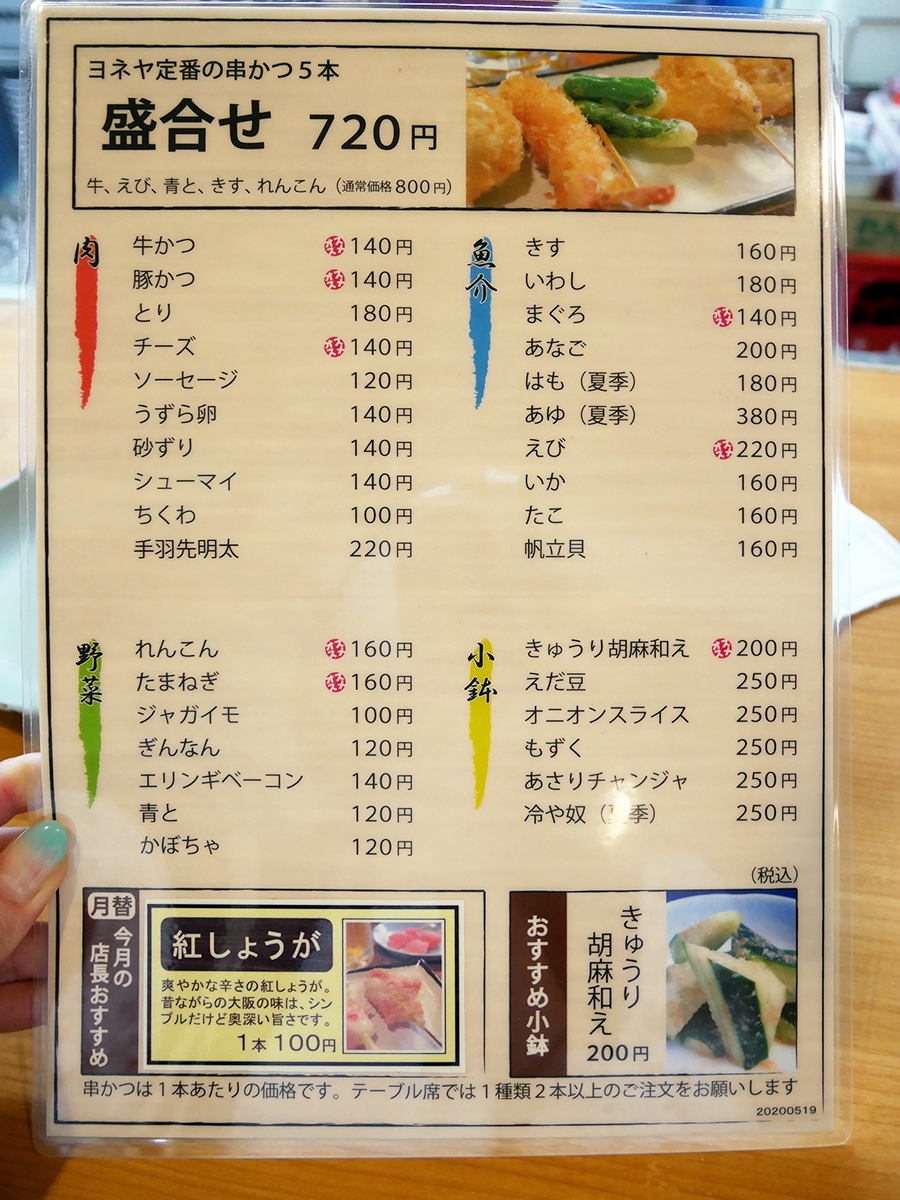 ヨネヤ定番の串かつ5本
盛合せ 720円
牛、えび、青と、きす、れんこん（通常価格800円）
肉
牛かつ 140円
豚かつ 140円
とり 180円
チーズ 140円
ソーセージ 120円
うずら卵 140円
砂ずり 140円
シューマイ 140円
ちくわ 100円
手羽先明太 220円
魚介
きす 160円
いわし 180円
まぐろ 140円
あなご 200円
はも（夏季） 180円
あゆ（夏季） 380円
えび 220円
いか 160円
たこ 160円
帆立貝 160円
野菜
れんこん 160円
たまねぎ 160円
ジャガイモ 100円
ぎんなん 120円
エリンギベーコン 140円
青と 120円
かぼちゃ 120円
小鉢
きゅうり胡麻和え 200円
えだ豆 250円
オニオンスライス 250円
もずく 250円
あさりチャンジャ 250円
冷や奴（夏季） 250円
（税込）
月替
今月の
店長おすすめ
紅しょうが
爽やかな辛さの紅しょうが。
昔ながらの大阪の味は、シン
プルだけど奥深い旨さです。
1本 100円
おすすめ小鉢
きゅうり
胡麻和え
200円
串かつは1本あたりの価格です。テーブル席では1種類2本以上のご注文をお願いします
20200519